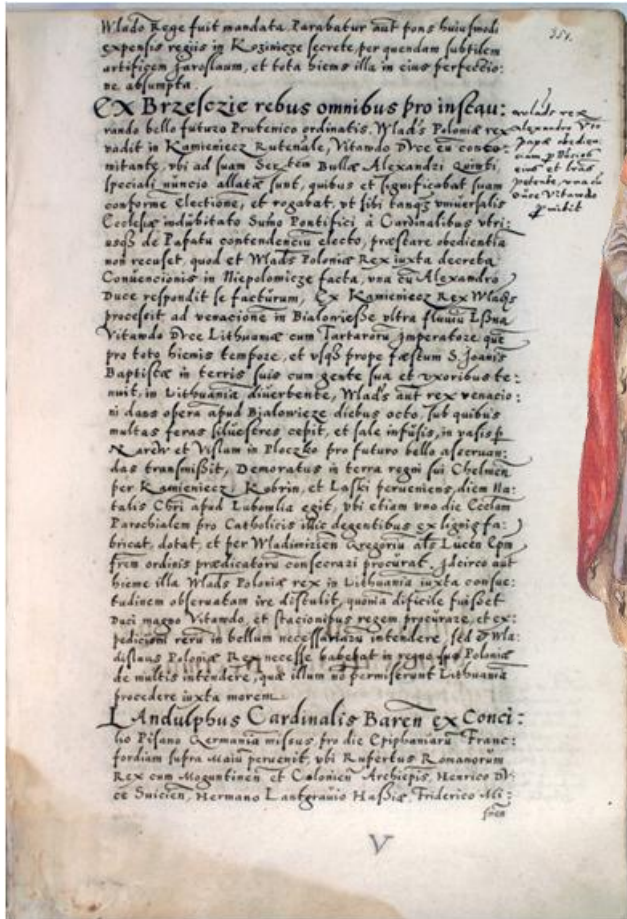 351.
Wlado Rege fuit mandata. Parabatur aut pons huiusmodi
expensis regiis in Kozinicze secrete, per quendam subtilem
artificem Jaroslaum, et tota hiems illa in eius perfectio:
ne absumpta.
Ex Brzesczie rebus omnibus pro instau:
rando bello futuro Prutenico ordinatis, Wlads Poloniæ rex
vadit in Kamieniecz Rutenale, Vitawdo Duce eu conco:
mitante, vbi ad suam Ser.tem Bullæ Alexandri Quinti
speciali nuncio allatæ sunt, quibus et significabat suam
conforme Electione, et rogabat, vt sibi tanq3 vniuersalis
Ecclesiæ indubitato Sumo Pontifici à Cardinalibus vtri:
usq3 de Papatu contendenciu electo, præstare obedientia
non recuset, quod et Wlads Poloniæ Rex iuxta decreta
Conuencionis in Niepolomicze facta, vna cu Alexandro
Duce respondit se facturum, Ex Kamieniecz Rex Wlads
procescit ad venacione in Bialowiesse vltra fluuiu Lsna
Vitawdo Duce Lithuaniæ cum Tartaroru Imperatore que
pro toto hiemis tempore, et vsq3 prope fæstum S. Joanis
Baptistæ in terris suis cum gente sua et vxoribus te:
nuit, in Lithuania diuertente, Wlads aut rex venacio:
ni dans opera apud Bialowieze diebus octo, sub quibus
multas feras siluestres cepit, et sale infusis, in vasis p
Narew et Vislam in Ploczko pro futuro bello asseruan:
das transmissit, Demoratus in terra regni sui Chelmen
per Kamieniecz, Kobrin, et Laski perueniens, diem Na:
talis Chri apud Lubomlia egit, vbi etiam vno die Ecclam
Parochialem pro Catholicis illic degentibus ex lignis fa:
bricat, dotat, et per Wladimirien Gregoriu als Lucen Epm
frem ordinis prædicatoru consecrari procurat. Idcirco aut
hieme illa Wlads Poloniæ rex in Lithuania iuxta consue:
tudinem obseruatam ire distulit, quonia dificile fuisset
Duci magno Vitawdo, et stacionibus regem procurare, et ex:
pedicioni reru in bellum necessariaru intendere, sed et Wla:
dislaus Poloniæ Rex necesse habebat in regno suo Poloniæ
de multis intendere, quæ illum no permiserunt Lithuania
procedere iuxta morem.
Landulphus Cardinalis Baren ex Conci:
lio Pisano Germania missus, pro die Epiphaniaru Franc:
fordiam supra Moiu peruenit, vbi Rupertus Romanorum
Rex cum Moguntinen et Colonien Archiepis, Henrico Du:
ce Suicien, Hermano Lantgrauio Hassiæ, Friderico Mi:
snen
wlads rex
Alexandro Vto
papæ obedien:
ciam p Nucios
eius et lras
petente, vna cu
Duce Vitawdo
V